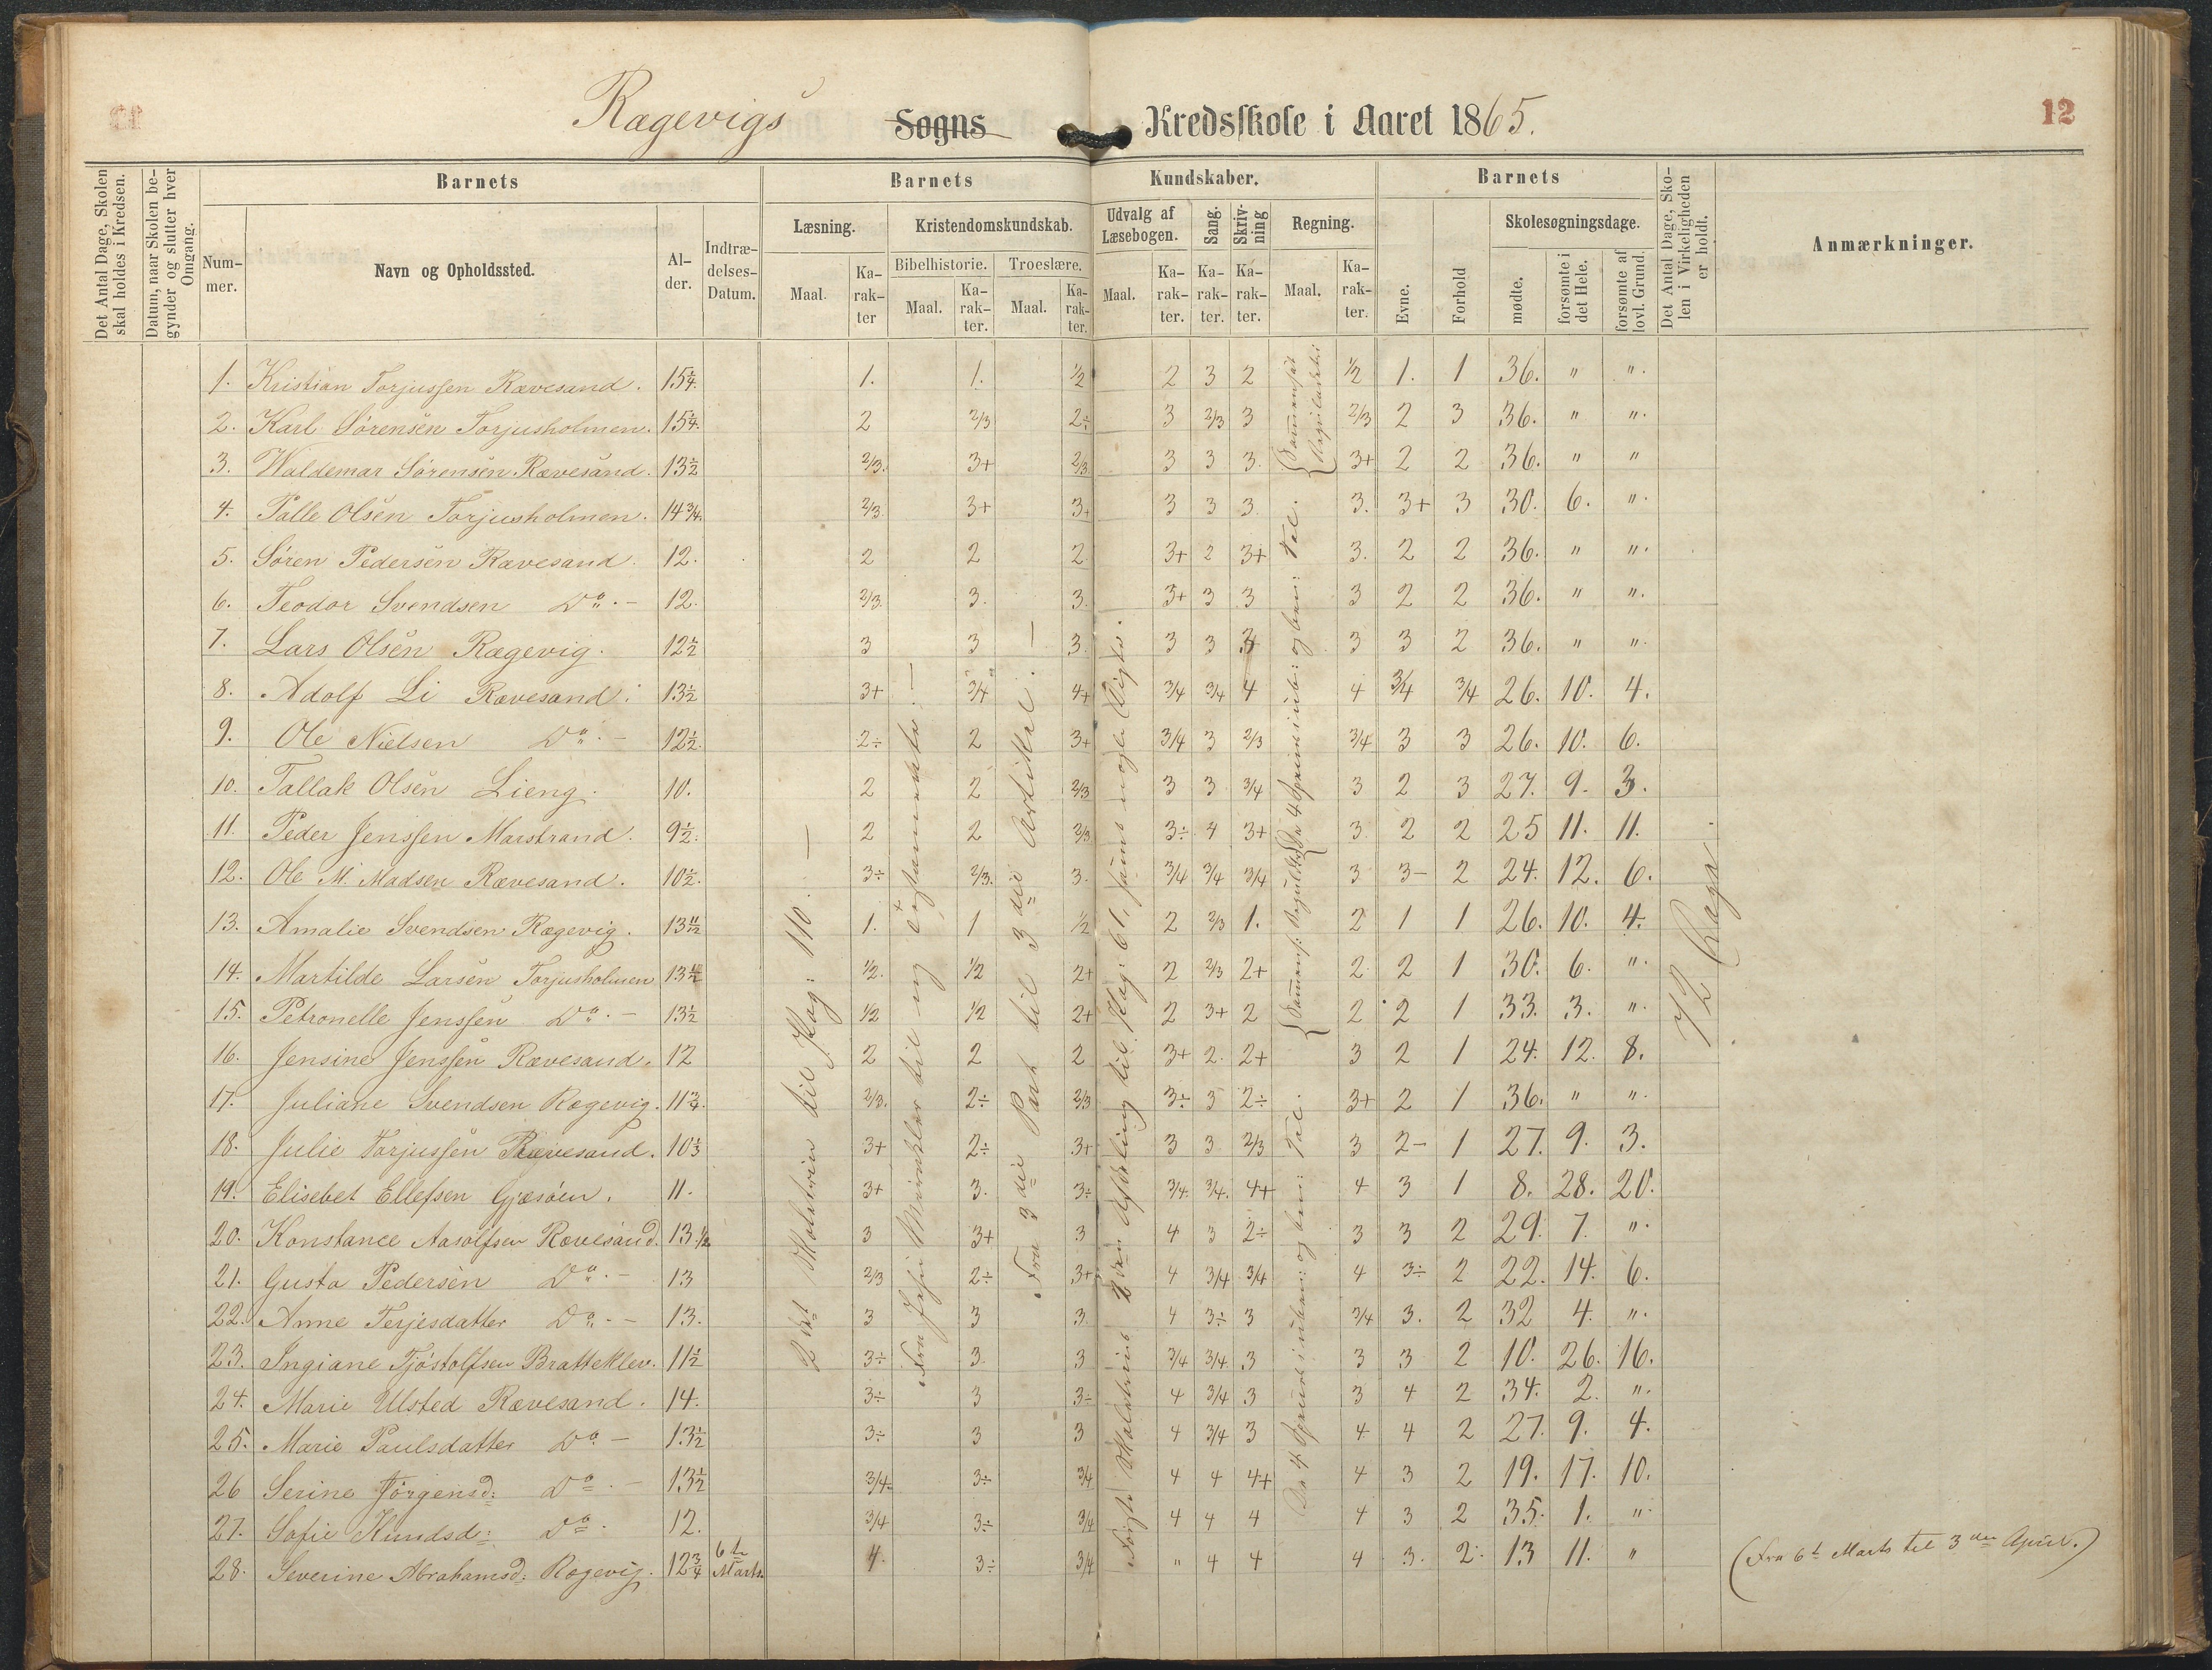 Rægevigs Sogns Kredsskole i Aaret 1865. 12
Det Antal Dage, Skolen skal holdes i Kredsen.
Datum, naar Skolen begynder og slutter hver Omgang.
Barnets
Nummer.
Navn og Opholdssted.
Alder.
Indtrædelses-Datum.
Barnets Kundskaber.
Læsning.
Maal. Karakter
Kristendomskundskab.
Bibelhistorie. Troeslære.
Maal. Karakter. Maal. Karakter.
Udvalg af Læsebogen.
Maal. Karakter.
Sang. Karakter.
Skrivning Karakter.
Regning.
Maal. Karakter.
Barnets
Evne. Forhold
Skolesøgningsdage.
mødte. forsømte i det Hele. forsømte af lovl. Grund.
Det Antal Dage, Skolen i Virkeligheden er holdt.
Anmærkninger.
1. Kristian Torjussen Rævesand. 15¼. 1. 1. ½ 2 3 2 ½ 1. 1 36. " ".
2. Karl Sørensen Torjusholmen. 15¼. 2 2/3 2÷ 3 2/3 3 2/3 2 3 36. " ".
3. Waldemar Sørensen Rævesand. 13½ 2/3. 3+ 2/3. 3 3 3. 3+ 2 2 36. " "
4. Palle Olsen Torjusholmen. 14¾. 2/3. 3+ 3+ 3 3 3. 3. 3+ 3 30. 6. ".
5. Søren Pedersen Rævesand. 12. 2 2 2 3+ 2 3+ 3. 2 2 36. " ".
6. Teodor Svendsen Do.- 12. 2/3. 3. 3. 3+ 3 3 3 2 2 36. " ".
7. Lars Olsen Rægevig. 12½ 3 3 3. 3 3 3 3 3 2 36. " ".
8. Adolf Li Rævesand. 13½ 3+ 3/4 4+ 3/4 3/4 4 4 3/4 3/4 26. 10. 4.
9. Ole Nielsen Do.- 12½. 2÷ 2 3+ 3/4 3 2/3 3/4 3 3 26. 10. 6.
10. Tallak Olsen Lieng. 10. 2 2 2/3 3 3 3/4 3 2 3 27. 9. 3.
11. Peder Jenssen Marstrand. 9½. 2 2 2/3 3÷ 4 3+ 3. 2 2 25 11. 11.
12. Ole M. Madsen Rævesand. 10½. 3÷ 2/3. 3. 3/4 3/4 3/4 3 3- 2 24. 12. 6.
13. Amalie Svendsen Rægevig. 13 11/12 1. 1 ½ 2 2/3 1. 2 1 1 26. 10. 4.
14. Martilde Larsen Torjusholmen ½. ½ 2+ 2 2/3 2+ 2. 2 1 30. 6. ".
15. Petronelle Jenssen Do.- 13½ ½ ½ 2+ 2 3+ 2 2 2 1 33. 3. ".
16. Jensine Jenssen Rævesand. 12 2 2 2 3+ 2. 2+ 3 2 1 24. 12. 8.
17. Juliane Svendsen Rægevig. 11¾. 2/3. 2÷ 2/3 3÷ 3 2÷ 3+ 2 1 36. " ".
18. Julie Torjussen Rævesand. 10⅓ 3+ 2÷ 3+ 3 3 2/3 3 2- 1 27. 9. 3.
19. Elisebet Ellefsen Gjæsøen. 11. 3+ 3. 3÷ 3/4. 3/4. 4+ 4 3 1 8. 28. 20.
20. Konstance Aasolfsen Rævesand. 13½ 3 3+ 3 4 3 2÷ 3 3 2 29. 7. ".
21. Gusta Pedersen Do.- 13 2/3 2÷ 3+ 4 3/4 3/4 4 3÷ 2 22. 14. 6.
22. Anne Terjesdatter Do.- 13. 3 3 3. 4 3÷ 3 3/4 3. 2 32 4. ".
23. Ingiane Tjøstolfsen Bratteklev. 11½ 3÷ 3. 3 3/4 3/4. 3 3 3 2 10. 26. 16.
24. Marie Ulsted Rævesand. 14. 3÷ 3 3÷ 4 3/4 3 3 4 2 34. 2. ".
25. Marie Paulsdatter Do- 13½ 3÷ 3 3 4 3/4 3 4 4 2 27. 9. 4.
26 Serine Jørgensd: Do.- 13½ 3/4. 3÷ 3/4 4 4 4+ 4 3 2 19. 17. 10.
27. Sofie Knudsd: Do. 12. 3/4 3÷ 3/4 4 4 4 4 3 2 35. 1. ".
28. Severine Abrahamsd: Rægevig. 12¾ 6te Marts. 4. 3÷ 3/4 " 4 4 4 3. 2. 13 11. " (Fra 6t Marts til 3die April.)
2det Maaltrin til Pag: 110.-
Fra Jesu Mirakler til og Testamentet.-
Fra 3die Part til 3die Artikel.-
Første Maaltrins 2den Afdeling til Pag: 61, samt nogle Digte.
Sammensat Regula detri
De 4 Species i ub: og ben: Tal.
De 4 Species i uben: og ben: Tal.
72 Dage.